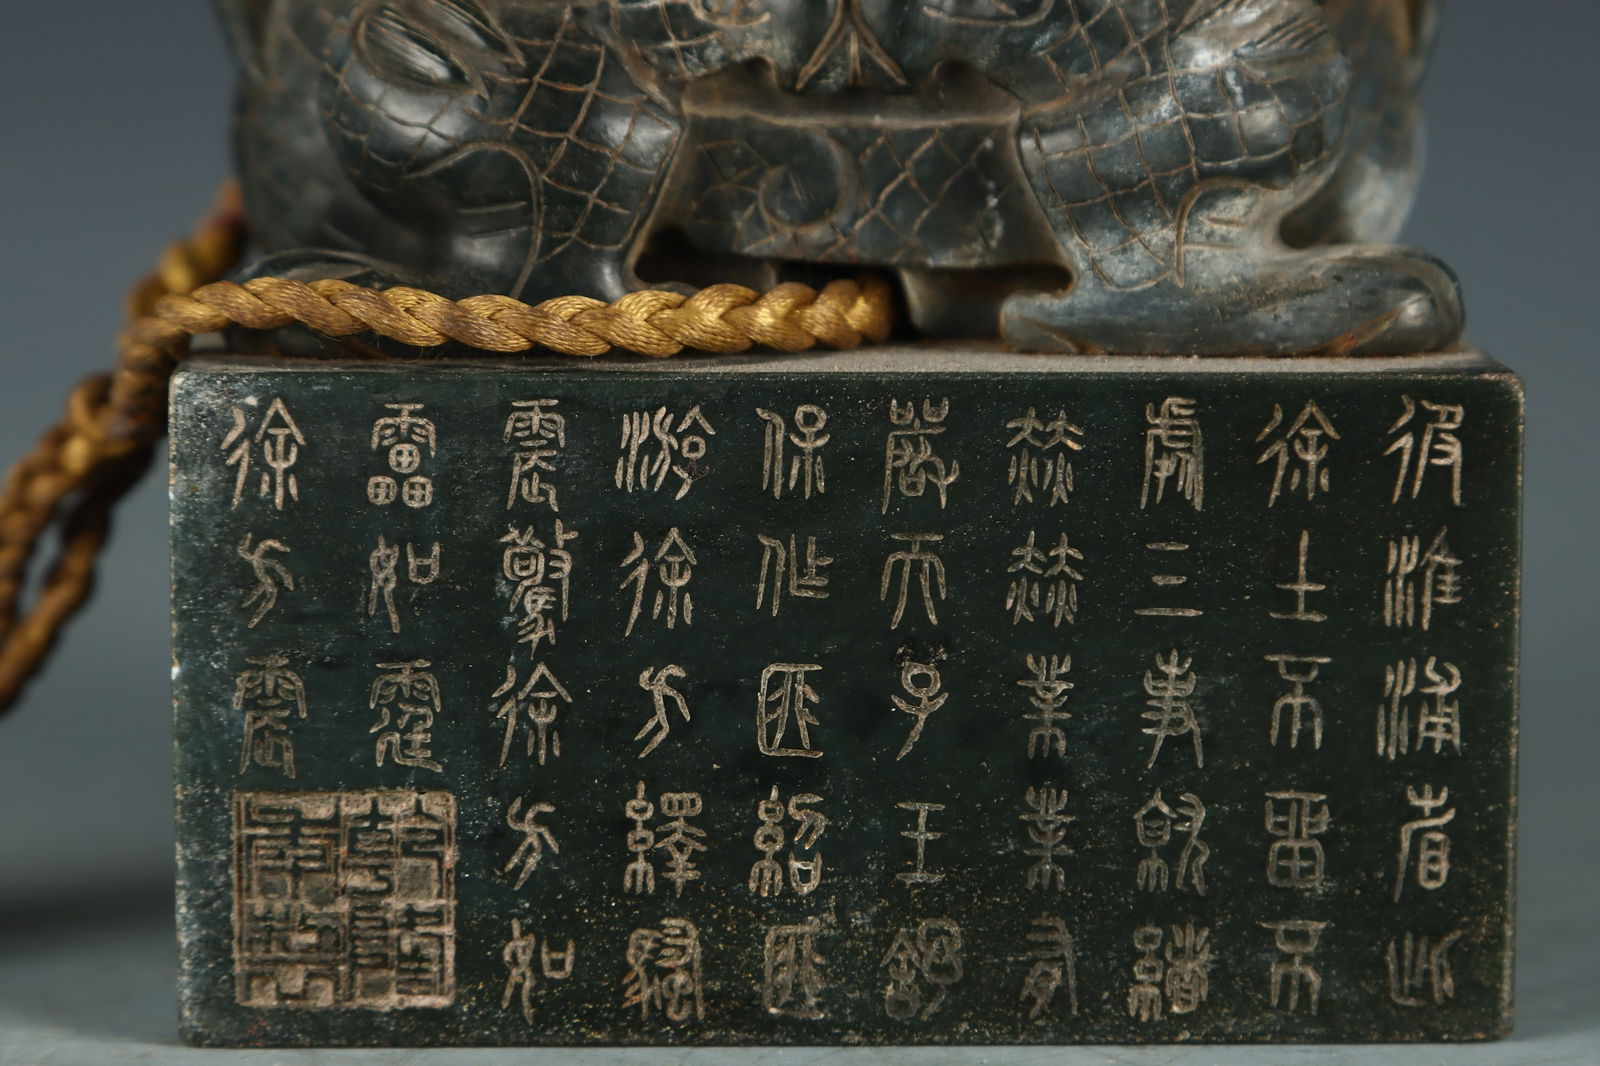 彼淮浦省此
徐土不留不
處三事就緒
赫赫業業有
嚴天子王舒
保作匪紹匪
游徐方繹騷
震驚徐方如
雷如霆
徐方震